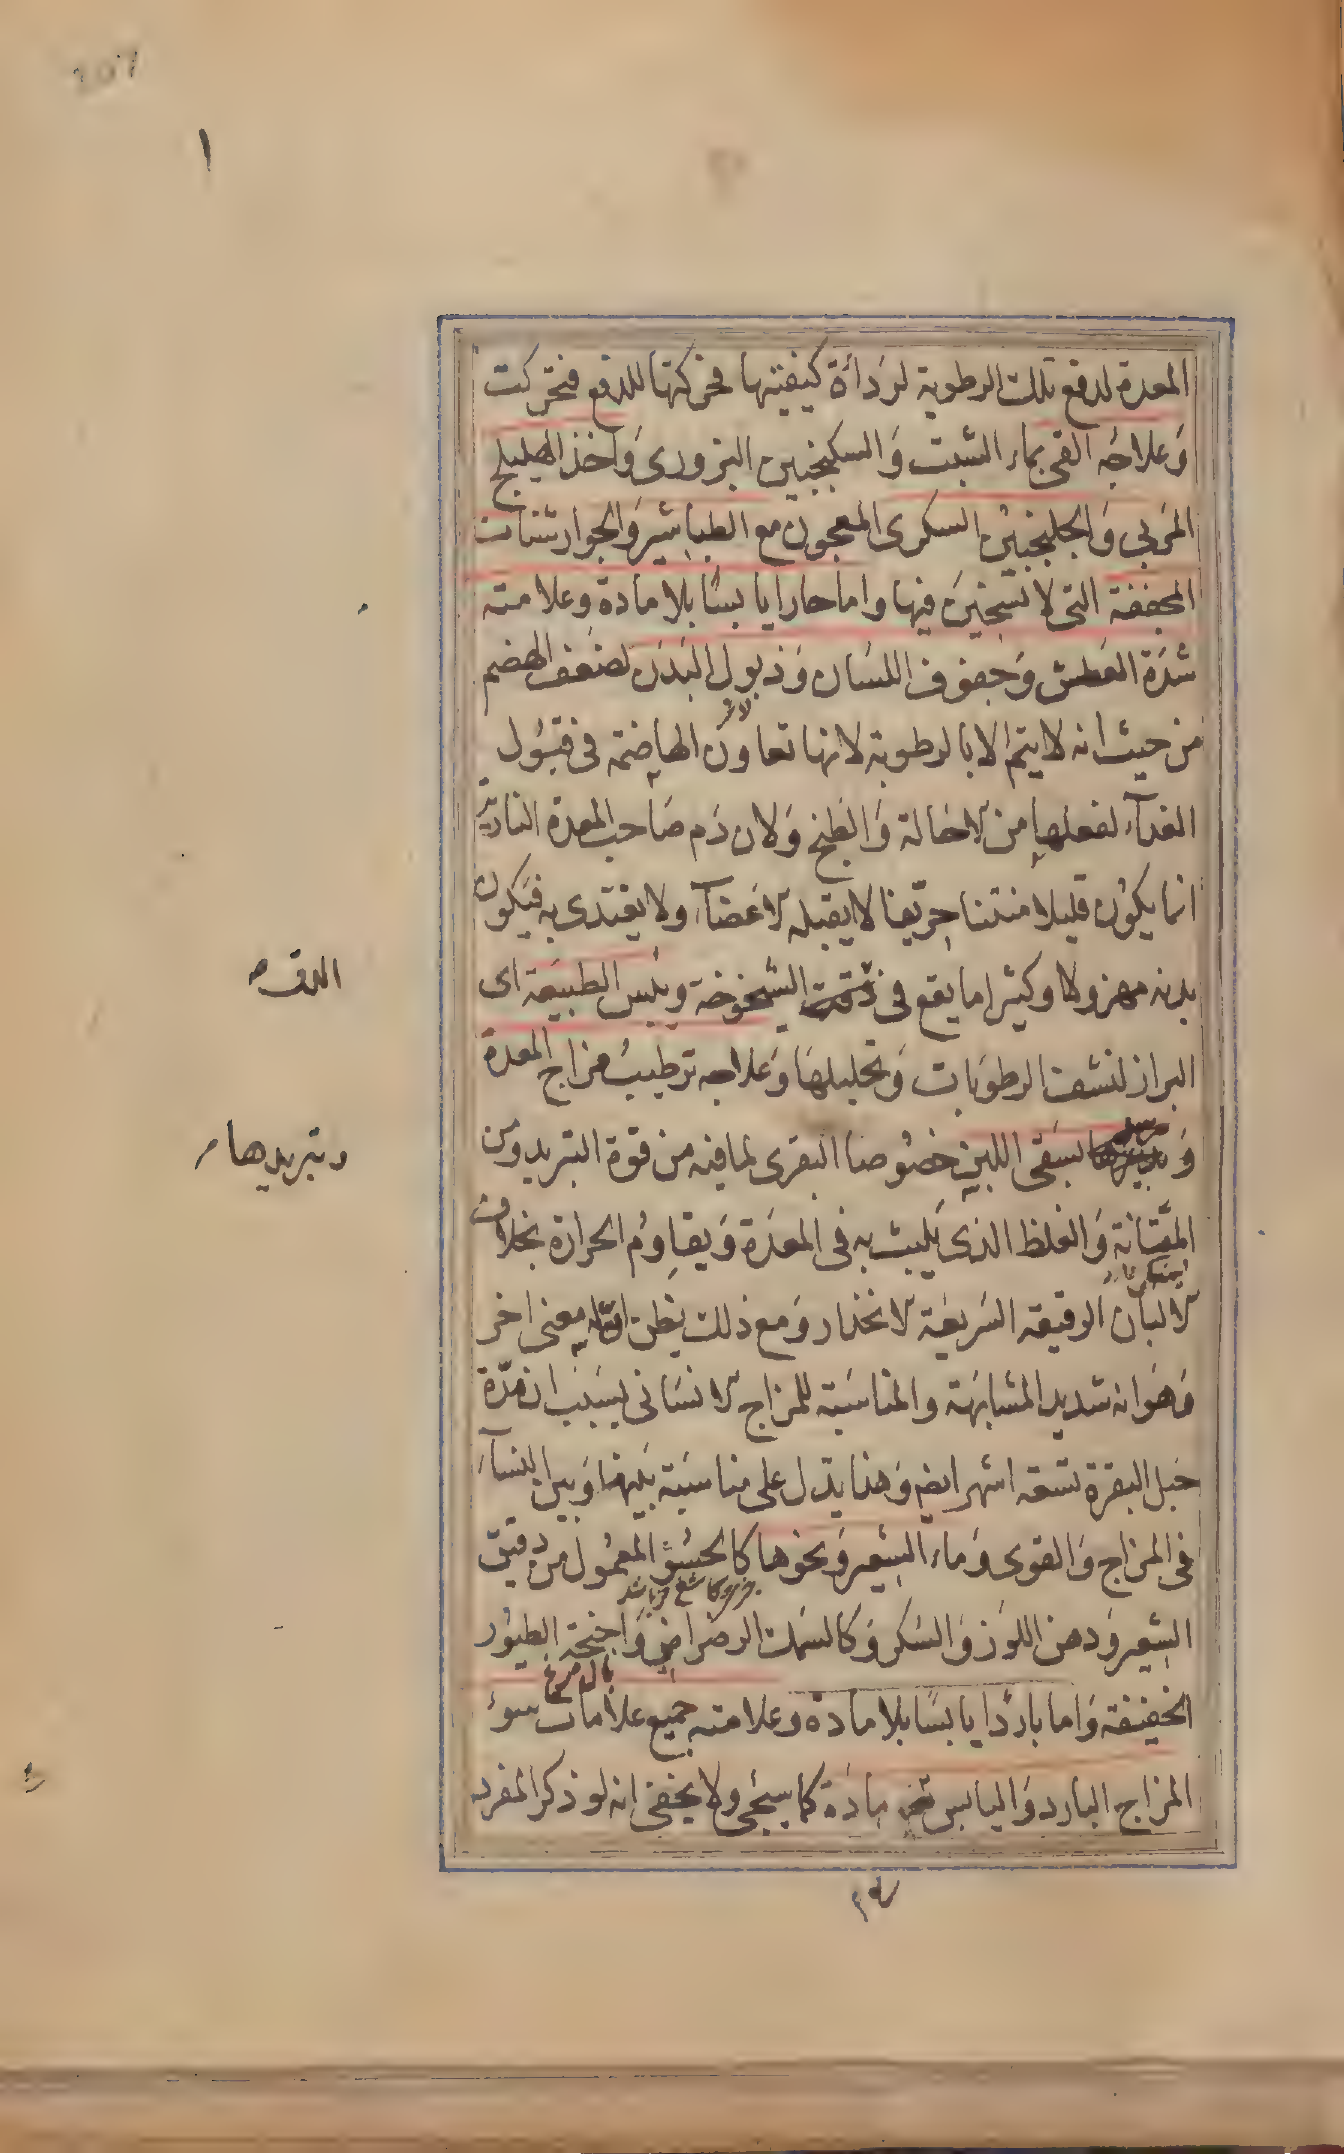 المعدة لدفع تلك الرطوبة لرداءة كيفيتها فحركتها للدفع فتحركت
وعلاجه القى بماء الشبت والسكنجبين البزورى واخذ الهليلج
المربى والجلنجبين السكرى المعجون مع الطباشير والجوارشنات
المجففة التى لا تسخين فيها واما حارا يابسا بلا مادة وعلامته
شدة العطش وجفوف اللسان وذبول البدن لضعف الهضم
من حيث انه لا يتم الا بالرطوبة لانها تعاون الهاضمة فى قبول
الغذآء لفعلها من الاحالة والطبخ ولان دم صاحب المعدة النارية
انما يكون قليلا منتنا حريفا لا يقبله الاعضآء ولا يغتذى به فيكون
بدنه مهزولا وكثيرا ما يقع فى الشيخوخة ويبس الطبيعة اى
الدق
البراز لنشف الرطوبات وتحليلها وعلاجه ترطيب مزاج المعدة
وتبريدها
بسقى اللبن خصوصا البقرى لما فيه من قوة التبريد ومن
المتانة والغلظ الذى يلبث به فى المعدة ويقاوم الحرارة بخلاف
الالبان الرقيقه السريعة الانحدار ومع ذلك يظن معنى اخر
وهو انه شديد المشابهة والمناسبة للمزاج الانسانى بسبب ان مدة
حبل البقرة تسعه اشهر ايضا وهذا يدل على مناسبة بينها وبين النسآء
فى المزاج والقوى وماء الشعير ونحوها كالحسو المعمول من دقيق
الشعير ودهن اللوز والسكر وكالسمك الرضراضى واجنحة الطيور
بال مرغ
الخفيفة واما باردا يابسا بلا مادة وعلامته جميع علامات سوء
المزاج البارد واليابس مادة كما سيجى ولا يخفى انه لو ذكر المفرد